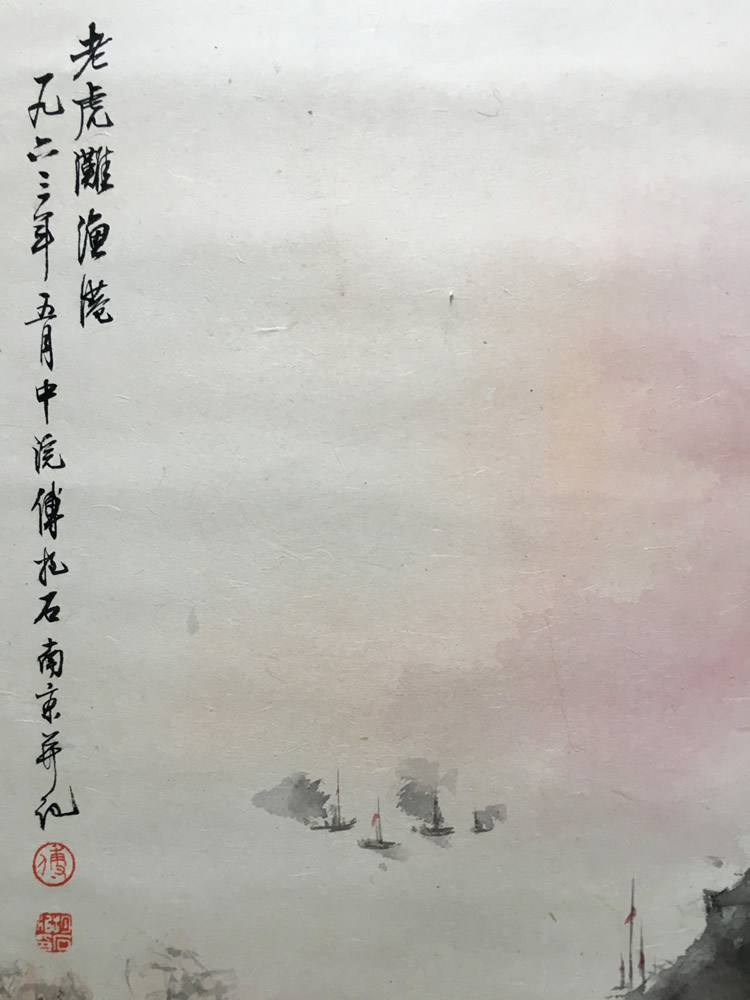 老虎灘漁港
一九六三年五月中浣傅抱石南京并記
傅